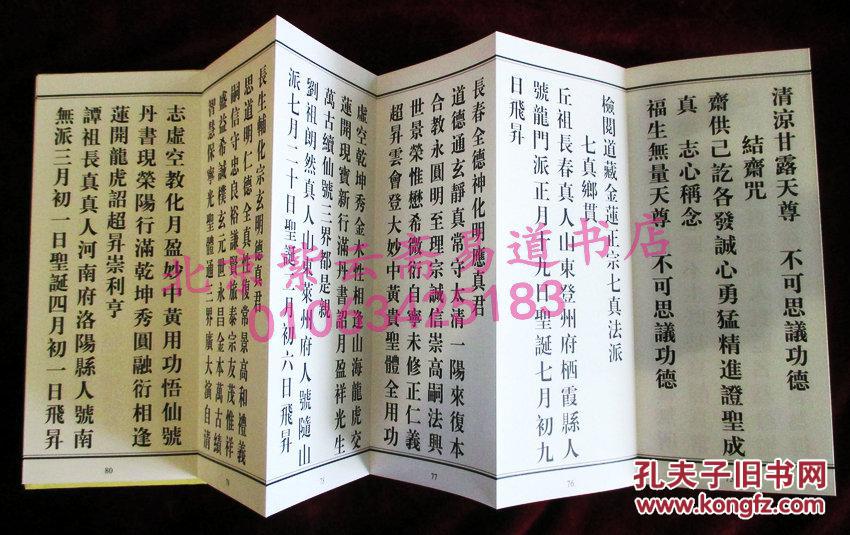 清涼甘露天尊　不可思議功德
結齋咒
齋供已訖各發誠心勇猛精進證聖成
真　志心稱念
福生無量天尊　不可思議功德
檢閱道藏金蓮正宗七真法派
七真鄉貫
丘祖長春真人山東登州府栖霞縣人
號龍門派正月十九日聖誕七月初九
日飛昇
76
長春全德神化明應真君
道德通玄靜真常守太清一陽來復本
合教永圓明至理宗誠信崇高嗣法興
世景榮惟懋希微衍自寧未修正仁義
超昇雲會登大妙中黃貴聖體全用功
77
虛空乾坤秀金木性相逢山海龍虎交
蓮開現寶新行滿丹書詔月盈祥光生
萬古續仙號三界都是親
劉祖朗然真人山東萊州府人號隨山
派七月二十日聖誕二月初六日飛昇
78
長生輔化宗玄明德真君
思道明仁德全真復常景高和禮義
嗣信守忠良裕謙賢振泰宗友茂惟祥
盛益希誠樸玄元世永昌金本萬古續
智慧保寧光聖體通三界廣大演自清
志虛空教化月盈妙中黃用功悟仙號
丹書現榮陽行滿乾坤秀圓融衍相逢
蓮開龍虎詔超昇崇利亨
譚祖長真真人河南府洛陽縣人號南
無派三月初一日聖誕四月初一日飛昇
80
北京紫云斋易道书店
01063425183
孔夫子旧书网
www.kongfz.com